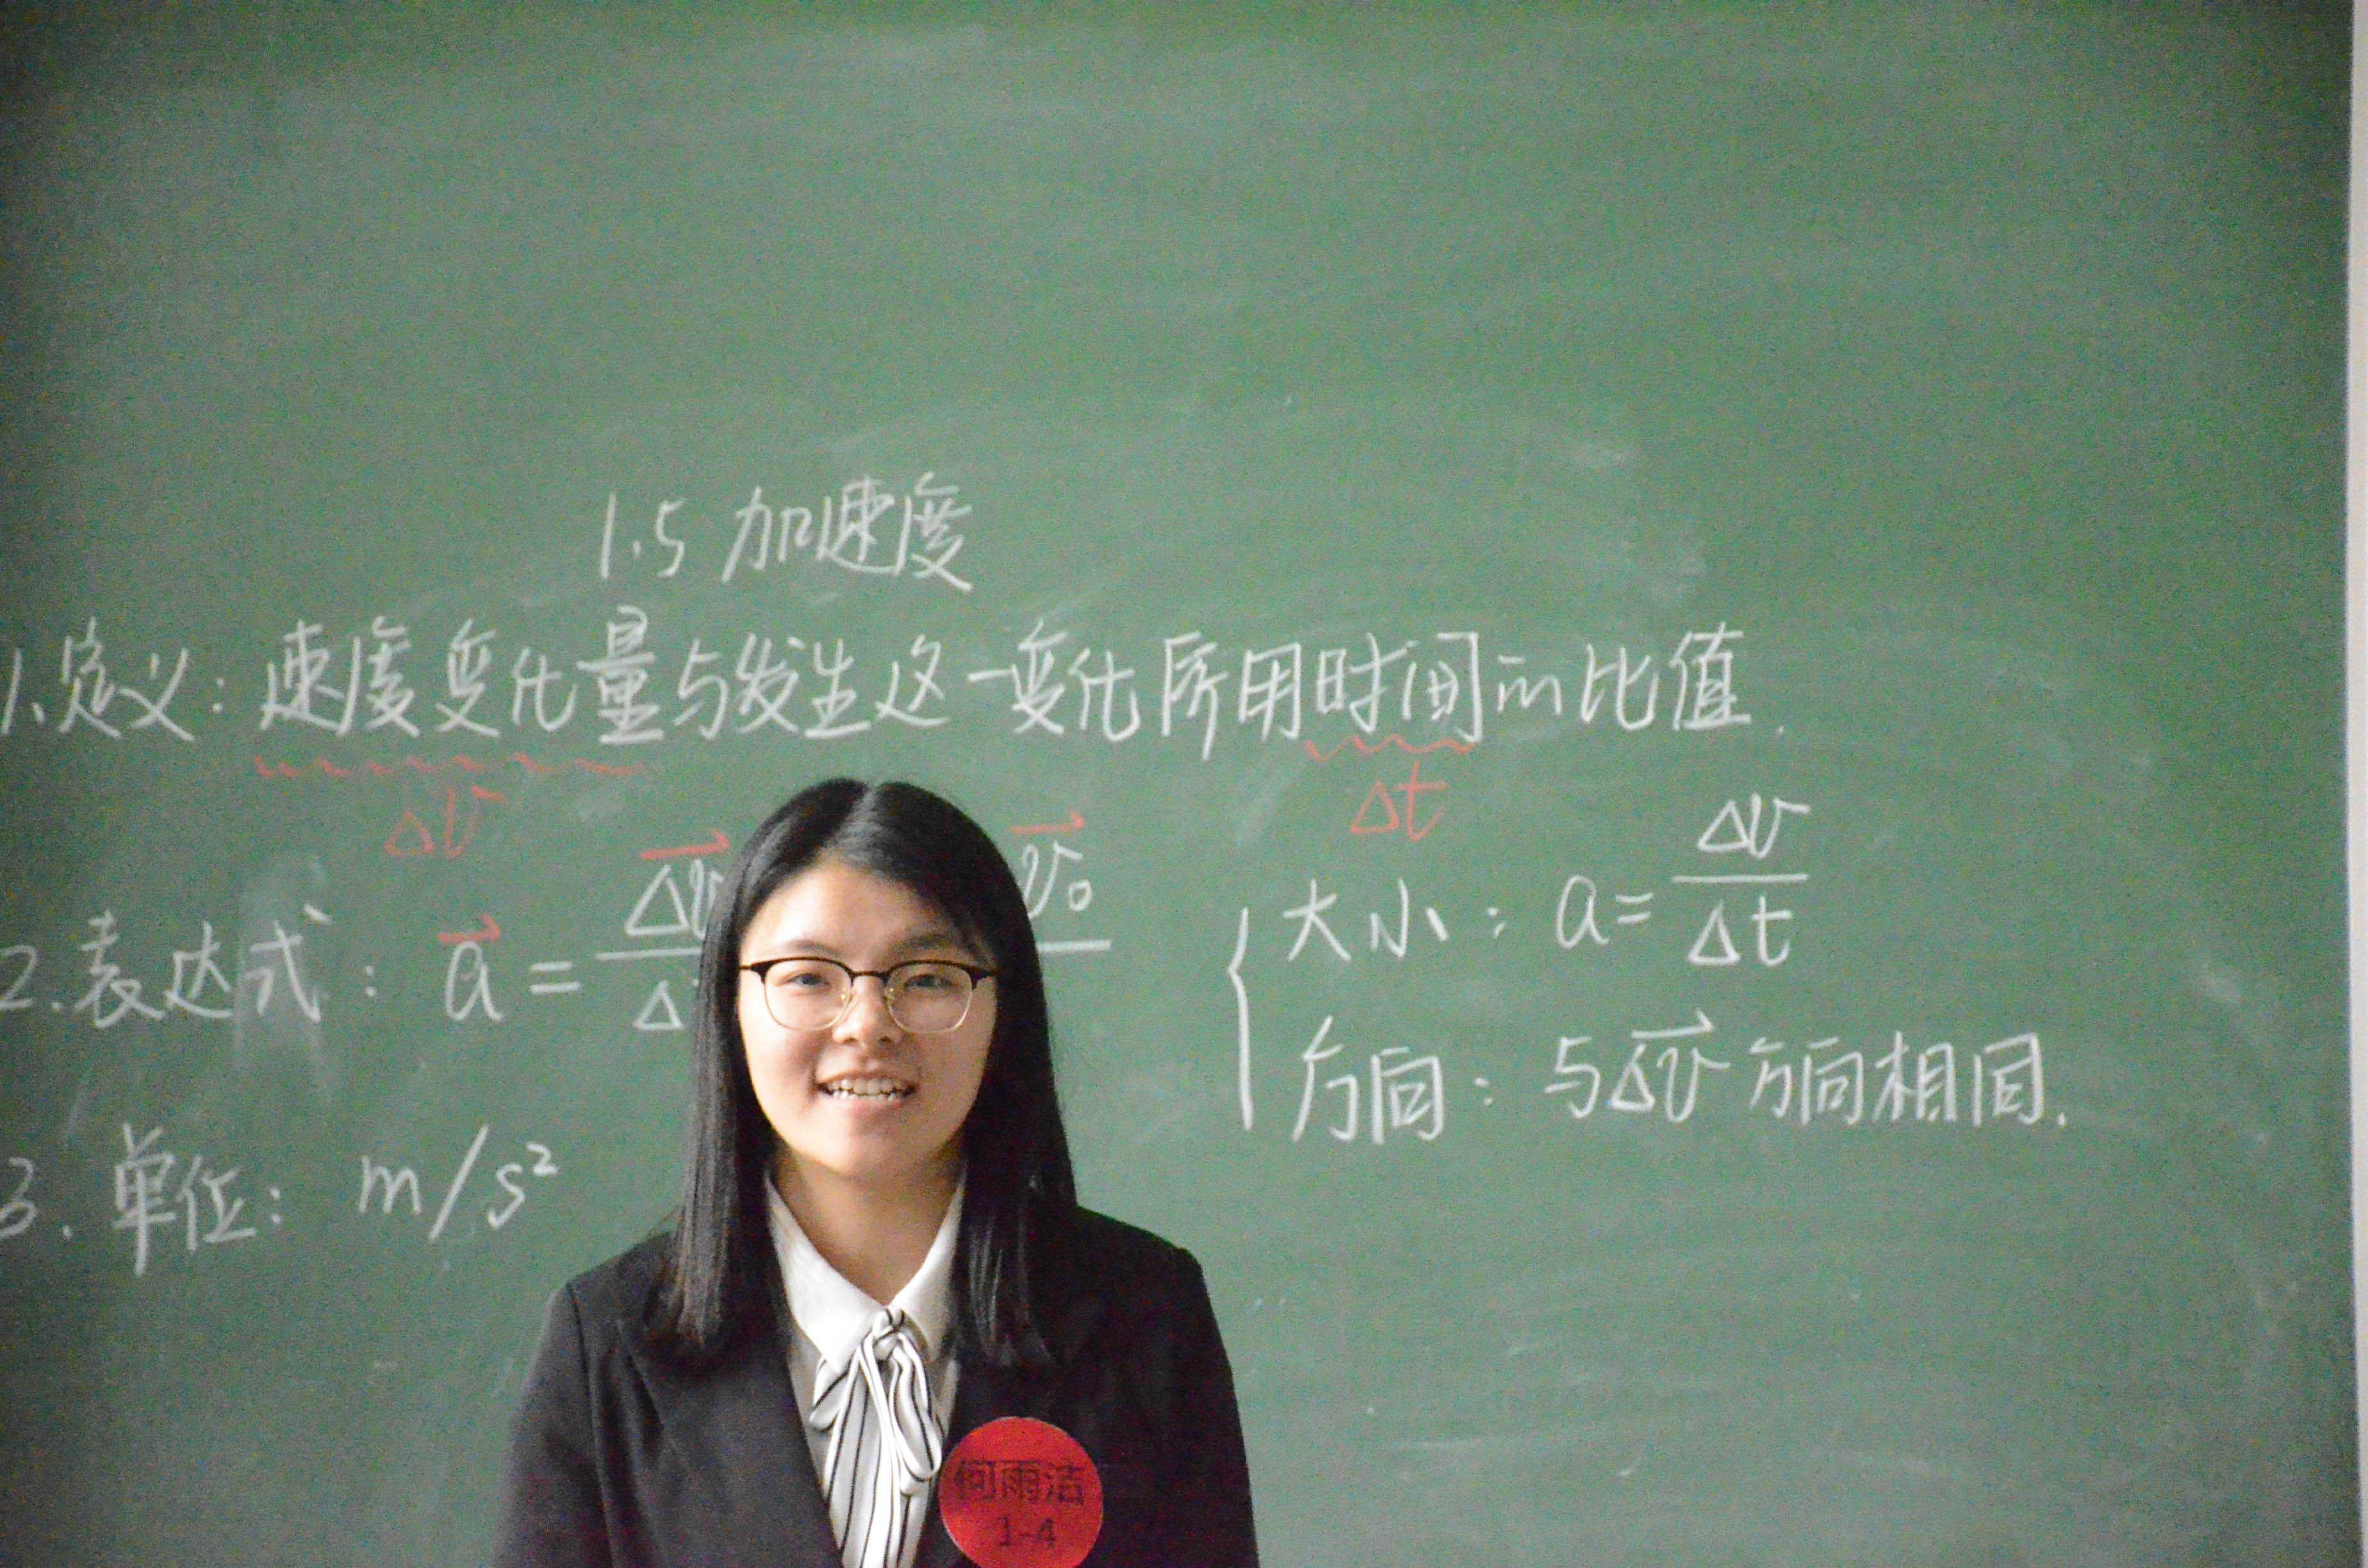 1.5 加速度
1.定义：速度变化量与发生这一变化所用时间的比值.
Δv
Δt
2.表达式：a⃗ = Δv⃗ Δ v⃗₀
大小：a = Δv/Δt
方向：与Δv⃗方向相同.
3.单位：m/s²
何雨洁
1-4